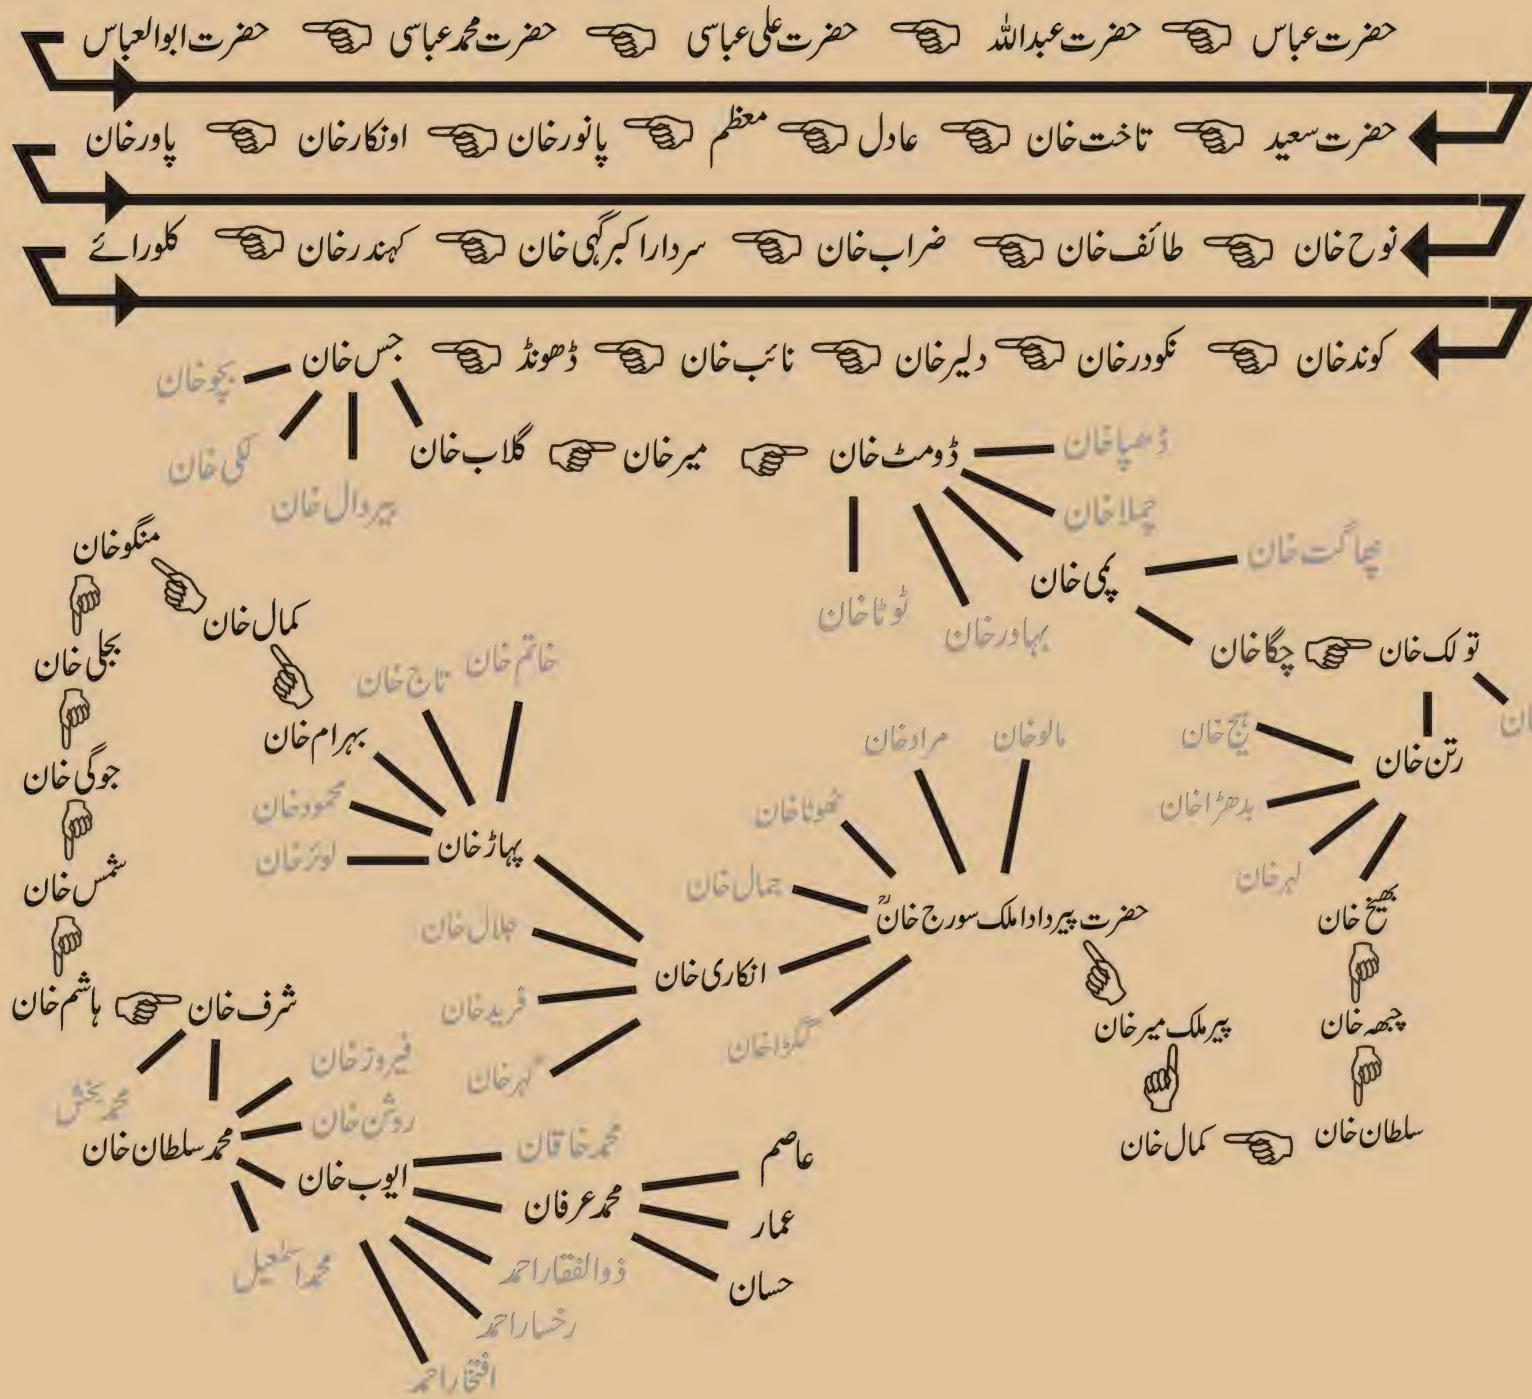 حضرت عباس حضرت عبداللہ حضرت علی عباسی حضرت محمد عباسی حضرت ابوالعباس
حضرت سعید تاخت خان عادل معظم پانور خان اونکار خان پاور خان
نوح خان طائف خان ضراب خان سردار اکبر گہی خان کہندر خان کلورائے
کوند خان نکودر خان دلیر خان نائب خان ڈھونڈ جس خان
بچو خان
لکی خان
پیر دال خان
گلاب خان میر خان ڈومٹ خان
ڈھپا خان
چملا خان
ٹوٹا خان
بہادر خان
پمی خان
چھاگت خان
چگا خان تولک خان
رتن خان
بدھڑا خان
لہر خان
بھیخ خان
چبھہ خان
سلطان خان
کمال خان
پیر ملک میر خان
حضرت پیر دادا ملک سورج خانؒ
مالو خان
مراد خان
جمال خان
انکاری خان
جلال خان
فرید خان
گہر خان
پہاڑ خان
خاتم خان
تاج خان
محمود خان
بہرام خان
کمال خان
منگو خان
بجلی خان
جوگی خان
شمس خان
ہاشم خان
شرف خان
محمد بخش
محمد سلطان خان
فیروز خان
روشن خان
محمد اسمٰعیل
ایوب خان
محمد خاقان
محمد عرفان
ذوالفقار احمد
رخسار احمد
افتخار احمد
عاصم
عمار
حسان